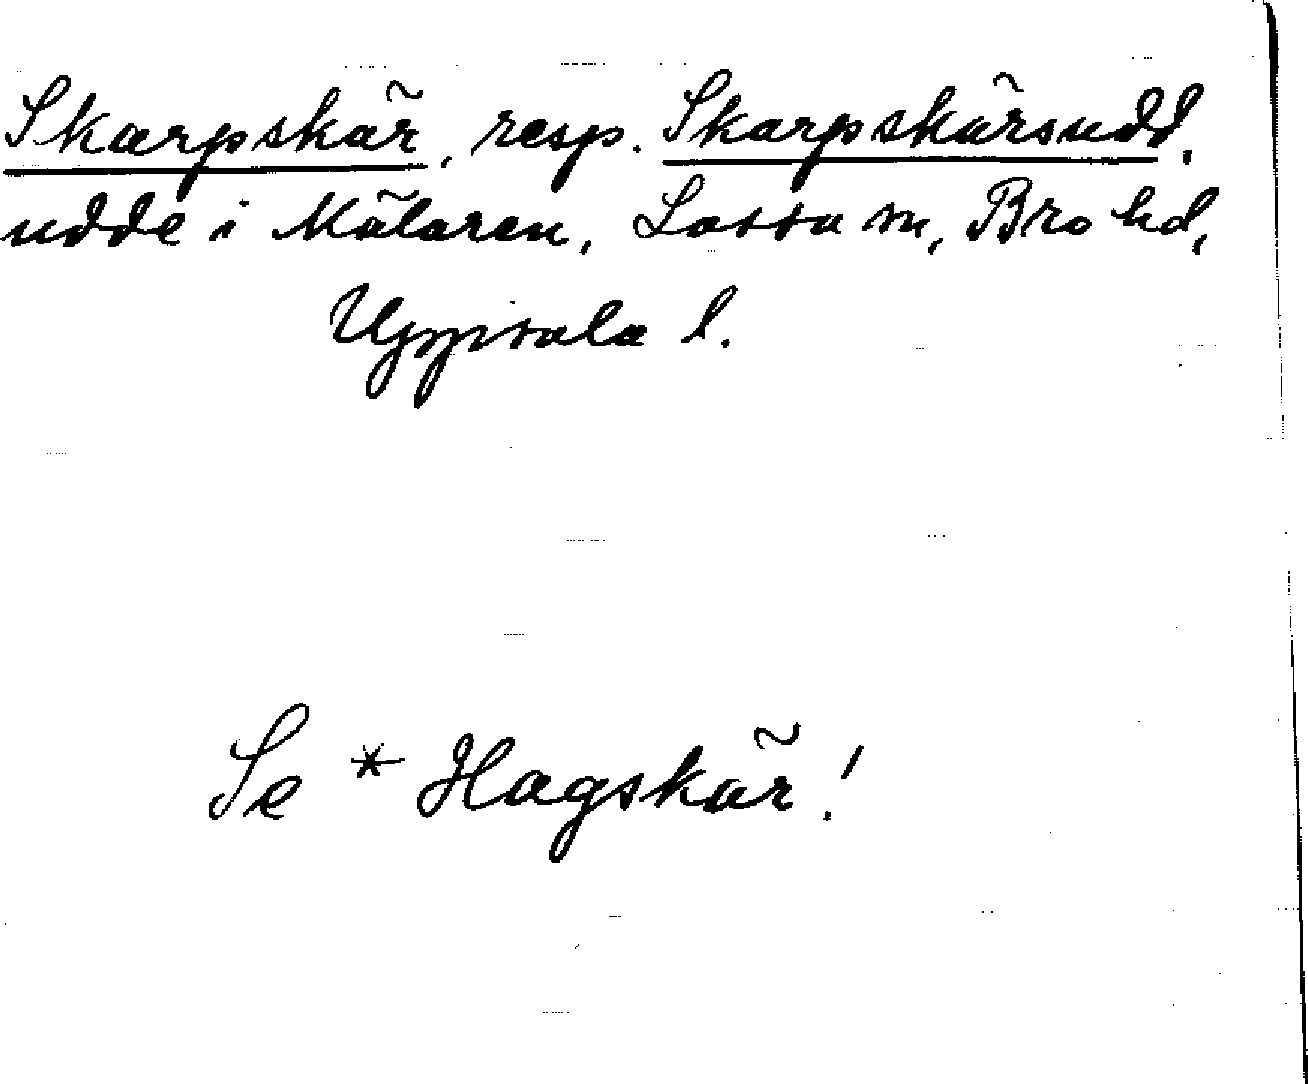 Skarpskär, resp. Skarpskärsudd,
udde i Mälaren, Lossa sn, Bro hd,
Uppsala l.
Se * Hagskär!